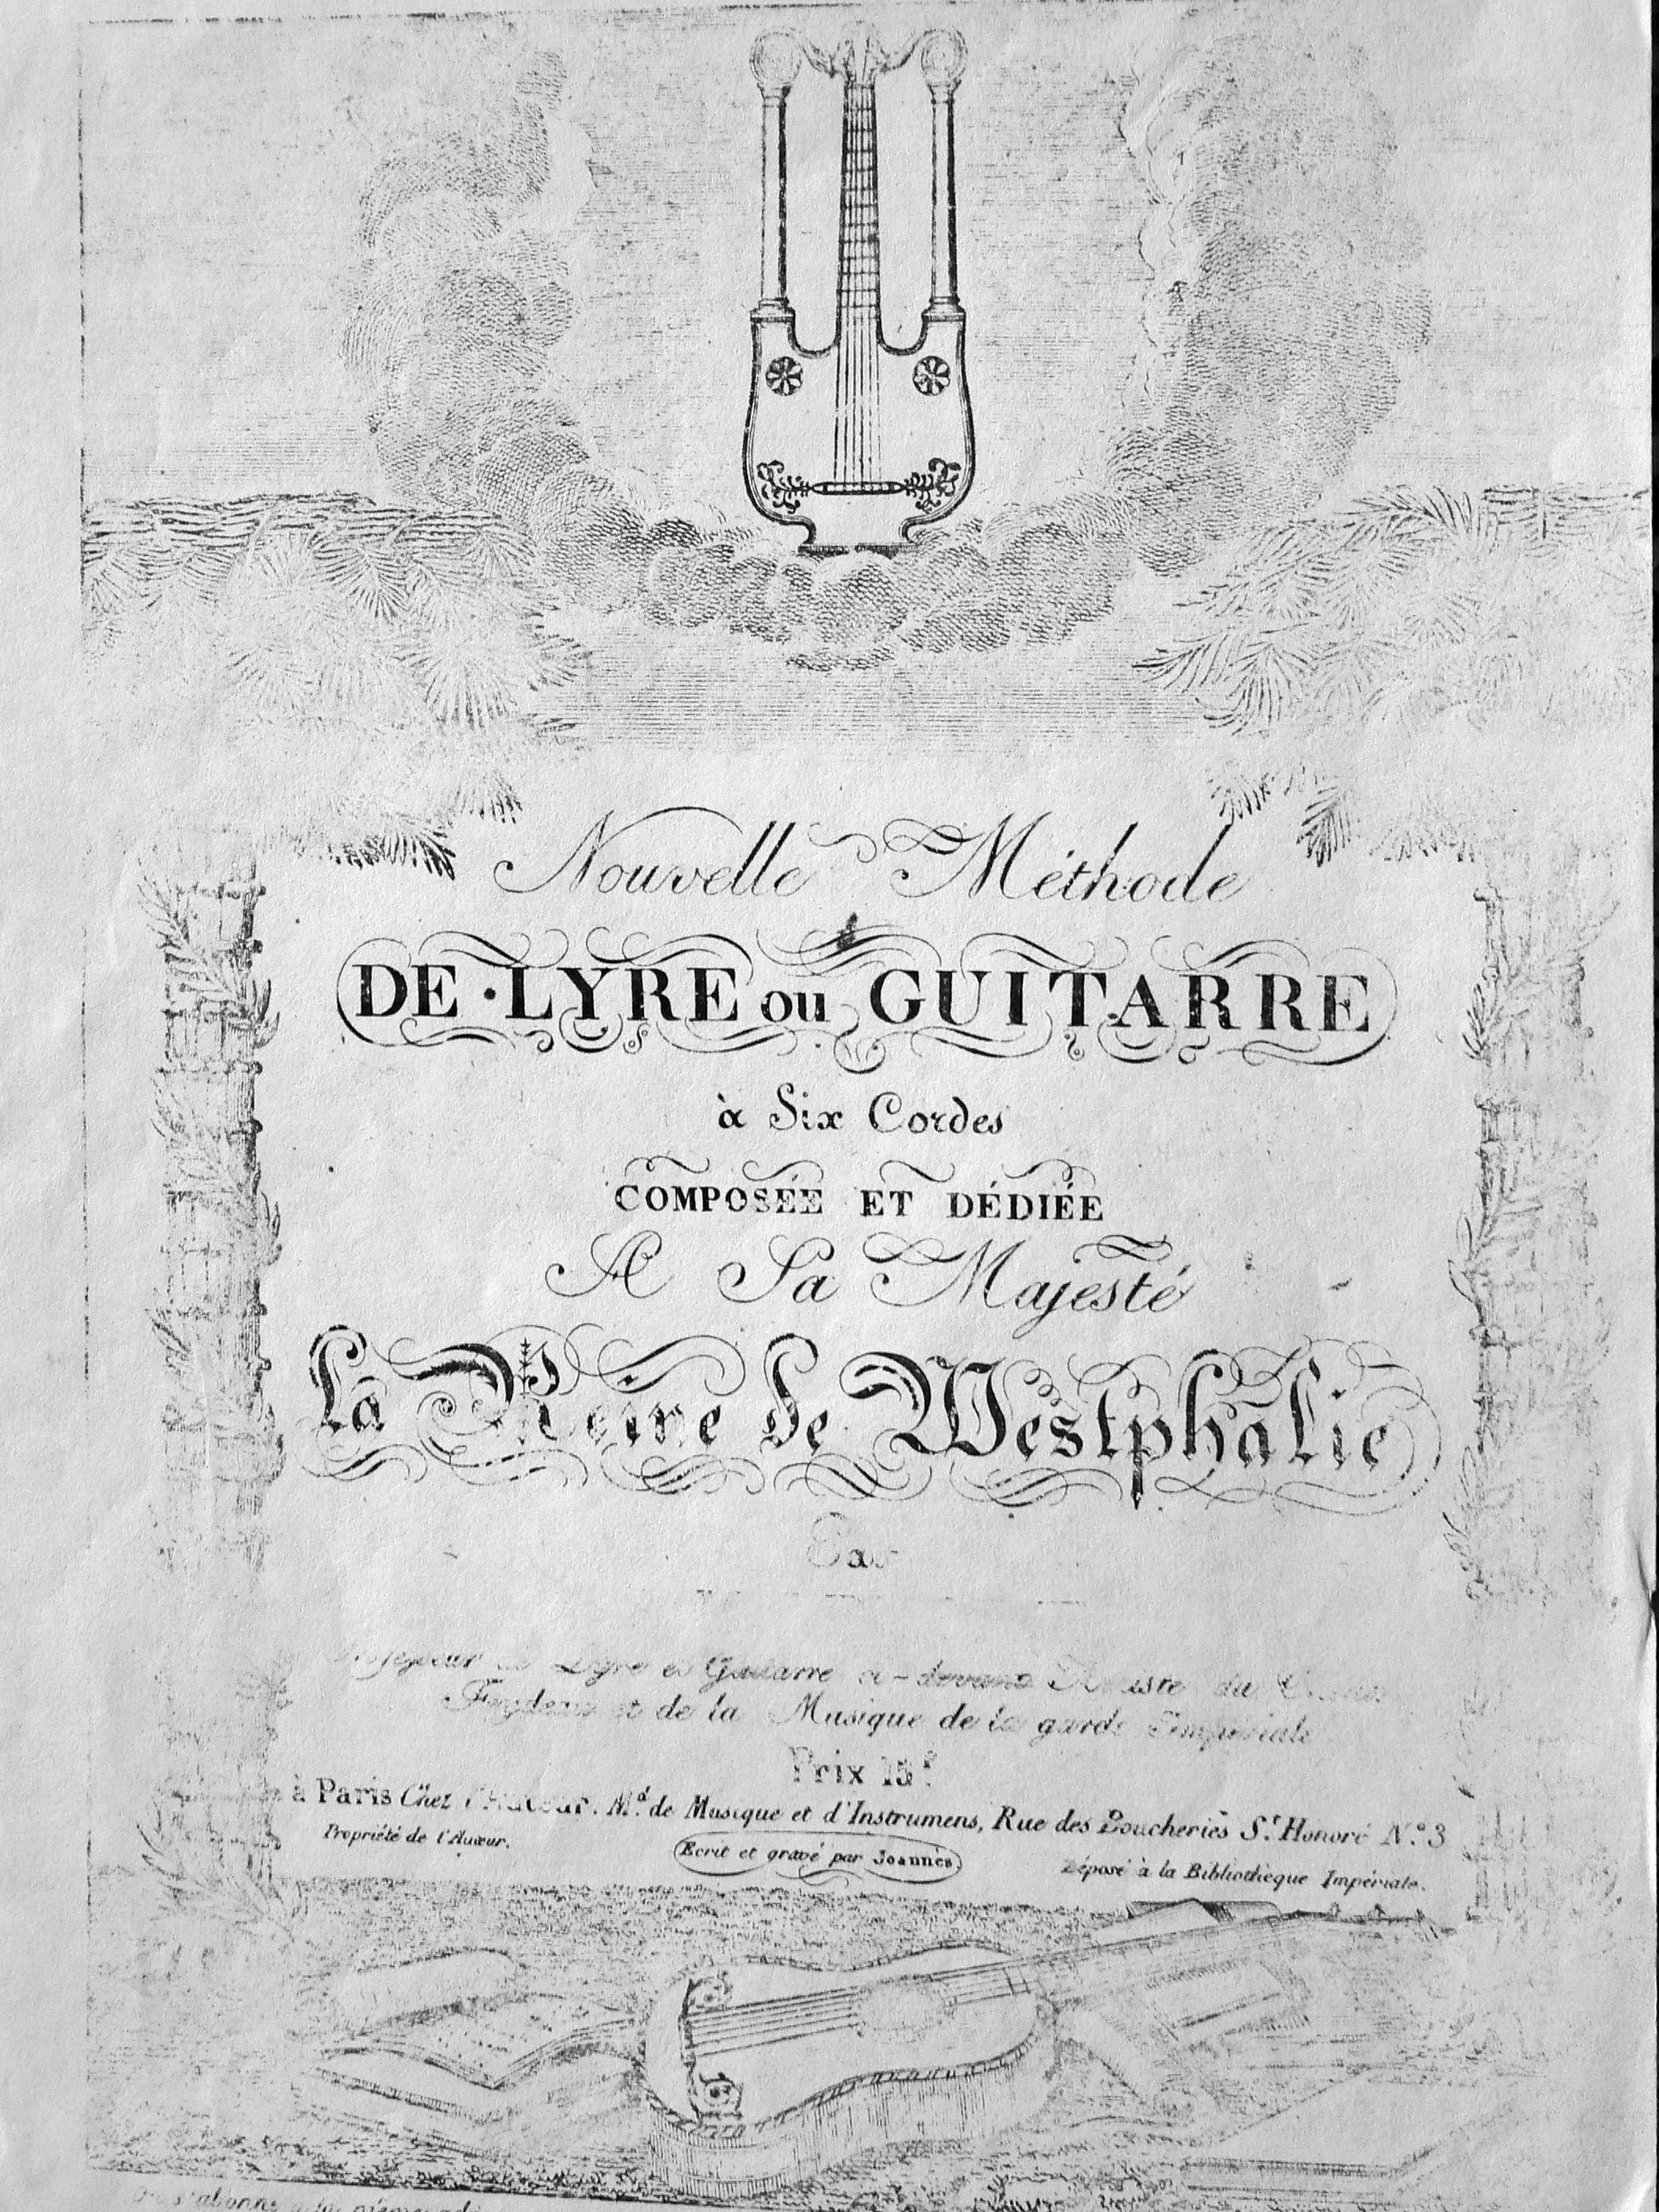 Nouvelle Méthode
DE LYRE ou GUITARRE
à Six Cordes
COMPOSÉE ET DÉDIÉE
A Sa Majesté
La Reine de Westphalie
Par
Lyre et Guitarre ci-devant du
et de la Musique de la garde Impériale
Prix 15.f
à Paris Chez l'Auteur. M.d de Musique et d'Instrumens, Rue des Boucheries S.t Honoré N.o 3
Propriété de l'Auteur.
Ecrit et gravé par Joannès
Déposé à la Bibliothèque Impériale.